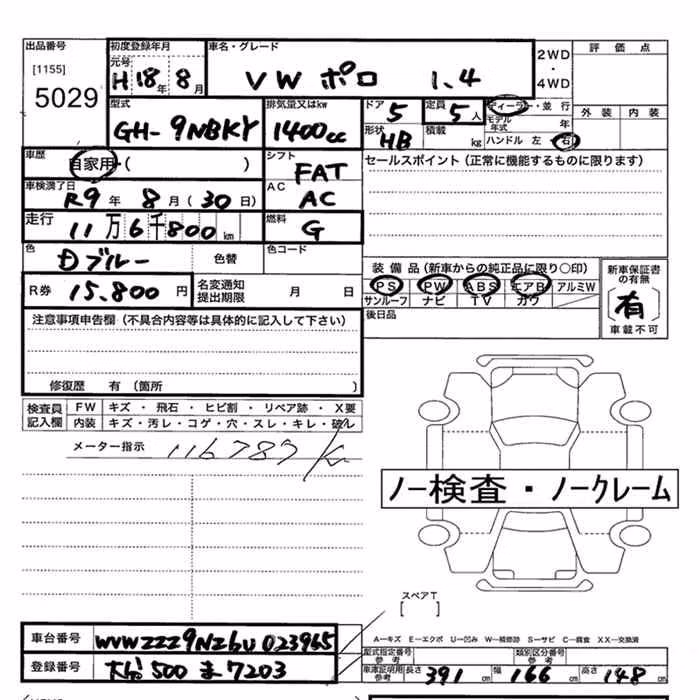 出品番号 初度登録年月 車名・グレード 2WD・4WD 評価点
[1155] 元号
5029 H 18年 8月 VW ポロ 1.4
型式 排気量又はkw ドア 定員 ディーラー・並行 外装 内装
GH-9NBKY 1400cc 5 5人 モデル年式 年
形状 HB 積載 kg ハンドル 左・右
車歴 自家用・( ) シフト FAT セールスポイント(正常に機能するものに限ります)
車検満了日 R9年 8月(30日) AC AC
走行 11万6千800km 燃料 G
色 Dブルー 色替 色コード
装備品(新車からの純正品に限り○印) 新車保証書の有無
R券 15.800円 名変通知提出期限 月 日
PS PW ABS エアB アルミW
サンルーフ ナビ TV カワ 〔有〕
後日品 車載不可
注意事項申告欄(不具合内容等は具体的に記入して下さい)
修復歴 有(箇所 )
検査員記入欄 FW キズ・飛石・ヒビ割・リペア跡・X要
内装 キズ・汚レ・コゲ・穴・スレ・キレ・破レ
メーター指示 116787km
ノー検査・ノークレーム
スペアT
[ ]
車台番号 WVWZZZ9NZ6U023965
A-キズ E-エクボ U-凹み W-補修跡 S-サビ C-腐食 XX-交換済
型式指定番号 参考 類別区分番号 参考
登録番号 500 ま 7203
車庫証明用 参考 長さ 391cm 幅 166cm 高さ 148cm